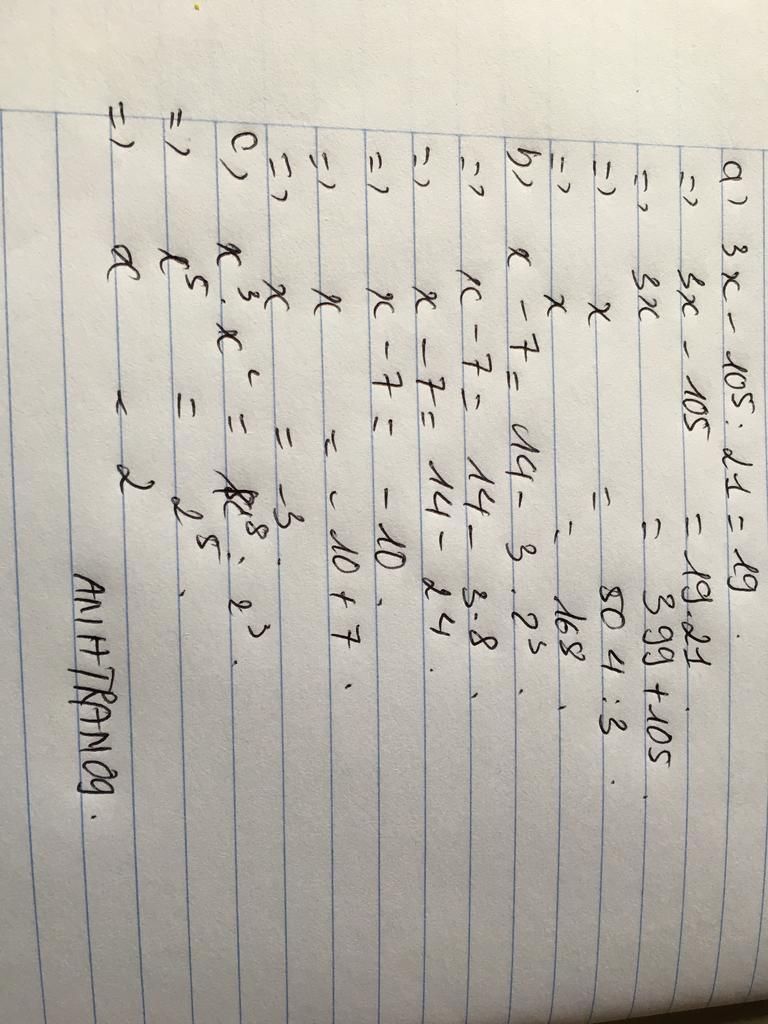 a) 3x - 105 : 21 = 19.
=> 3x - 105 = 19.21.
=> 3x = 399 + 105.
=> x = 504 : 3.
=> x = 168.
b) x - 7 = 14 - 3 . 2³.
=> x - 7 = 14 - 3.8.
=> x - 7 = 14 - 24.
=> x - 7 = -10.
=> x = -10 + 7.
=> x = -3.
c) x³ . x² = 2⁸ : 2³.
=> x⁵ = 2⁵.
=> x = 2
ANHTRAN09.